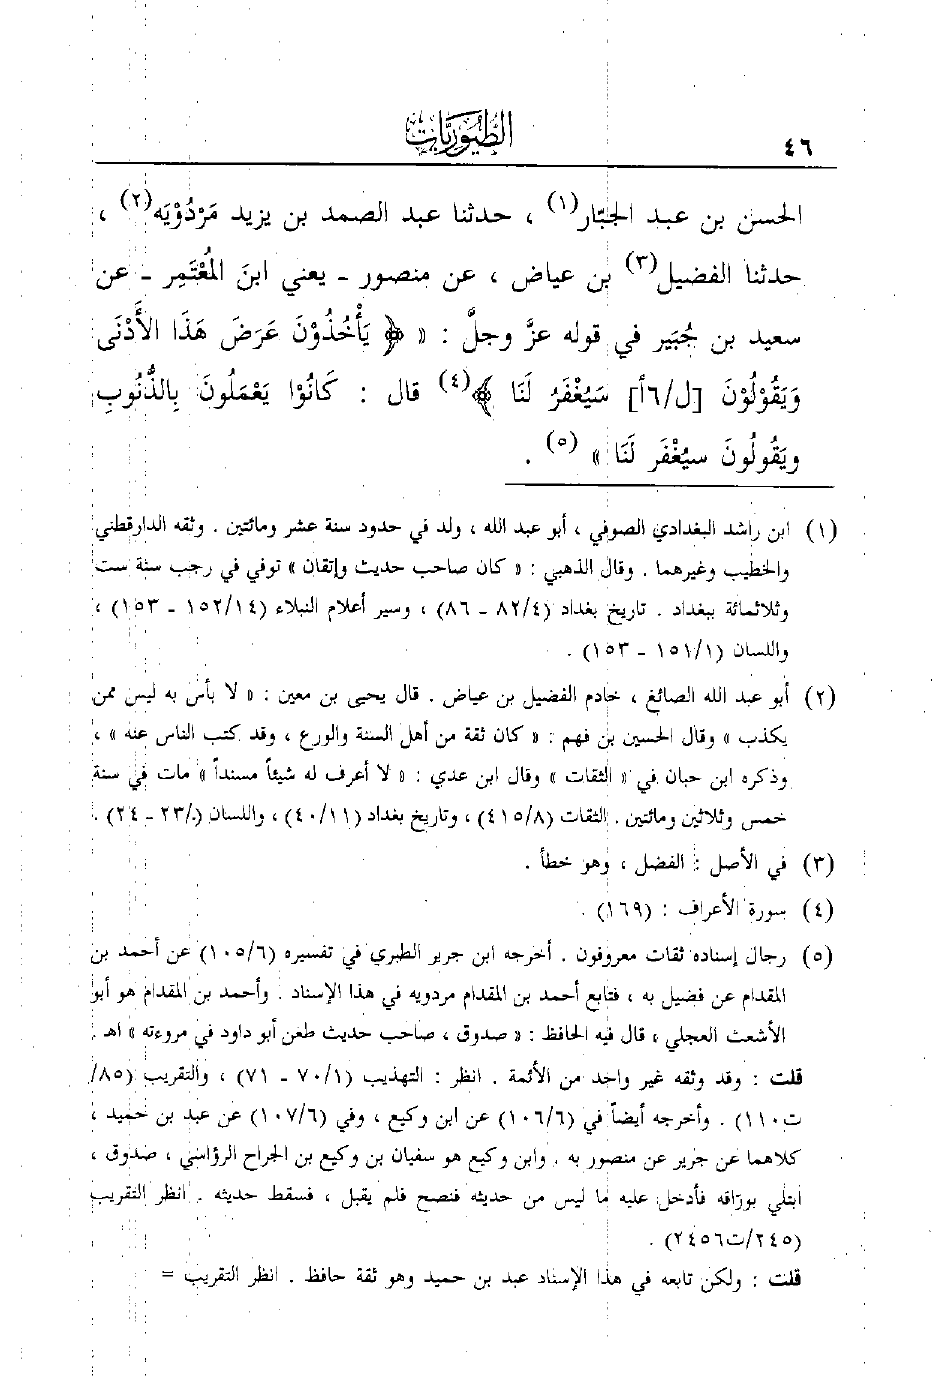 ٤٦ الطيوريات
الحسن بن عبد الجبّار(١) ، حدثنا عبد الصمد بن يزيد مَرْدُوْيَه(٢) ،
حدثنا الفضيل(٣) بن عياض ، عن منصور ـ يعني ابنَ المُعْتَمِر ـ عن
سعيد بن جُبَير في قوله عزَّ وجلَّ : « ﴿ يَأْخُذُوْنَ عَرَضَ هَذَا الأَدْنَى
وَيَقُوْلُوْنَ [ل/٦أ] سَيُغْفَرُ لَنَا ﴾(٤) قال : كَانُوْا يَعْمَلُونَ بِالذُّنُوبِ
ويَقُولُونَ سيُغْفَر لَنَا » (٥) .
(١) ابن راشد البغدادي الصوفي ، أبو عبد الله ، ولد في حدود سنة عشر ومائتين . وثقه الدارقطني
والخطيب وغيرهما . وقال الذهبي : « كان صاحب حديث وإتقان » توفي في رجب سنة ست
وثلاثمائة ببغداد . تاريخ بغداد (٨٢/٤ ـ ٨٦) ، وسير أعلام النبلاء (١٥٢/١٤ ـ ١٥٣) ،
واللسان (١٥١/١ ـ ١٥٣) .
(٢) أبو عبد الله الصائغ ، خادم الفضيل بن عياض . قال يحيى بن معين : « لا بأس به ليس ممن
يكذب » وقال الحسين بن فهم : « كان ثقة من أهل السنة والورع ، وقد كتب الناس عنه » ،
وذكره ابن حبان في « الثقات » وقال ابن عدي : « لا أعرف له شيئاً مسنداً » مات في سنة
خمس وثلاثين ومائتين . الثقات (٤١٥/٨) ، وتاريخ بغداد (٤٠/١١) ، واللسان (/٢٣ ـ ٢٤) .
(٣) في الأصل : الفضل ، وهو خطأ .
(٤) سورة الأعراف : (١٦٩) .
(٥) رجال إسناده ثقات معروفون . أخرجه ابن جرير الطبري في تفسيره (١٠٥/٦) عن أحمد بن
المقدام عن فضيل به ، فتابع أحمد بن المقدام مردويه في هذا الإسناد . وأحمد بن المقدام هو أبو
الأشعث العجلي ، قال فيه الحافظ : « صدوق ، صاحب حديث طعن أبو داود في مروءته » اهـ .
قلت : وقد وثقه غير واحد من الأئمة . انظر : التهذيب (٧٠/١ ـ ٧١) ، والتقريب (٨٥/
ت١١٠) . وأخرجه أيضاً في (١٠٦/٦) عن ابن وكيع ، وفي (١٠٧/٦) عن عبد بن حميد ،
كلاهما عن جرير عن منصور به . وابن وكيع هو سفيان بن وكيع بن الجراح الرؤاسي ، صدوق ،
ابتلي بورّاقه فأدخل عليه ما ليس من حديثه فنصح فلم يقبل ، فسقط حديثه . انظر التقريب
(٢٤٥/ت٢٤٥٦) .
قلت : ولكن تابعه في هذا الإسناد عبد بن حميد وهو ثقة حافظ . انظر التقريب =